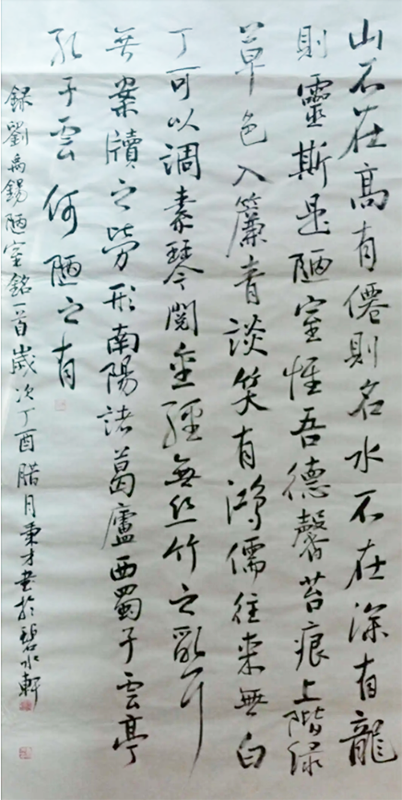 山不在高有僊則名水不在深有龍
則靈斯是陋室惟吾德馨苔痕上階緑
草色入簾青談笑有鴻儒往来無白
丁可以調素琴閲金經無丝竹之亂耳
無案牘之勞形南陽諸葛廬西蜀子雲亭
孔子雲何陋之有
録劉禹錫陋室銘一首歲次丁酉腊月秉才書於碧水軒